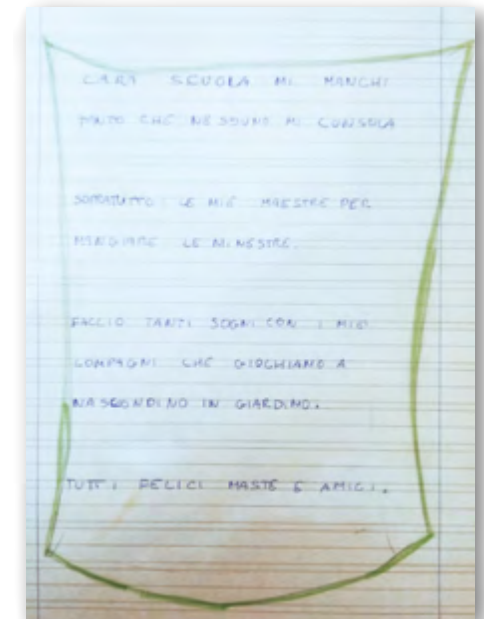 CARA SCUOLA MI MANCHI
TANTO CHE NESSUNO MI CONSOLA
SOPRATUTTO LE MIE MAESTRE PER
MANGIARE LE MINESTRE.
FACCIO TANTI SOGNI CON I MIEI
COMPAGNI CHE GIOCHIAMO A
NASCONDINO IN GIARDINO.
TUTTI FELICI MASTE E AMICI.